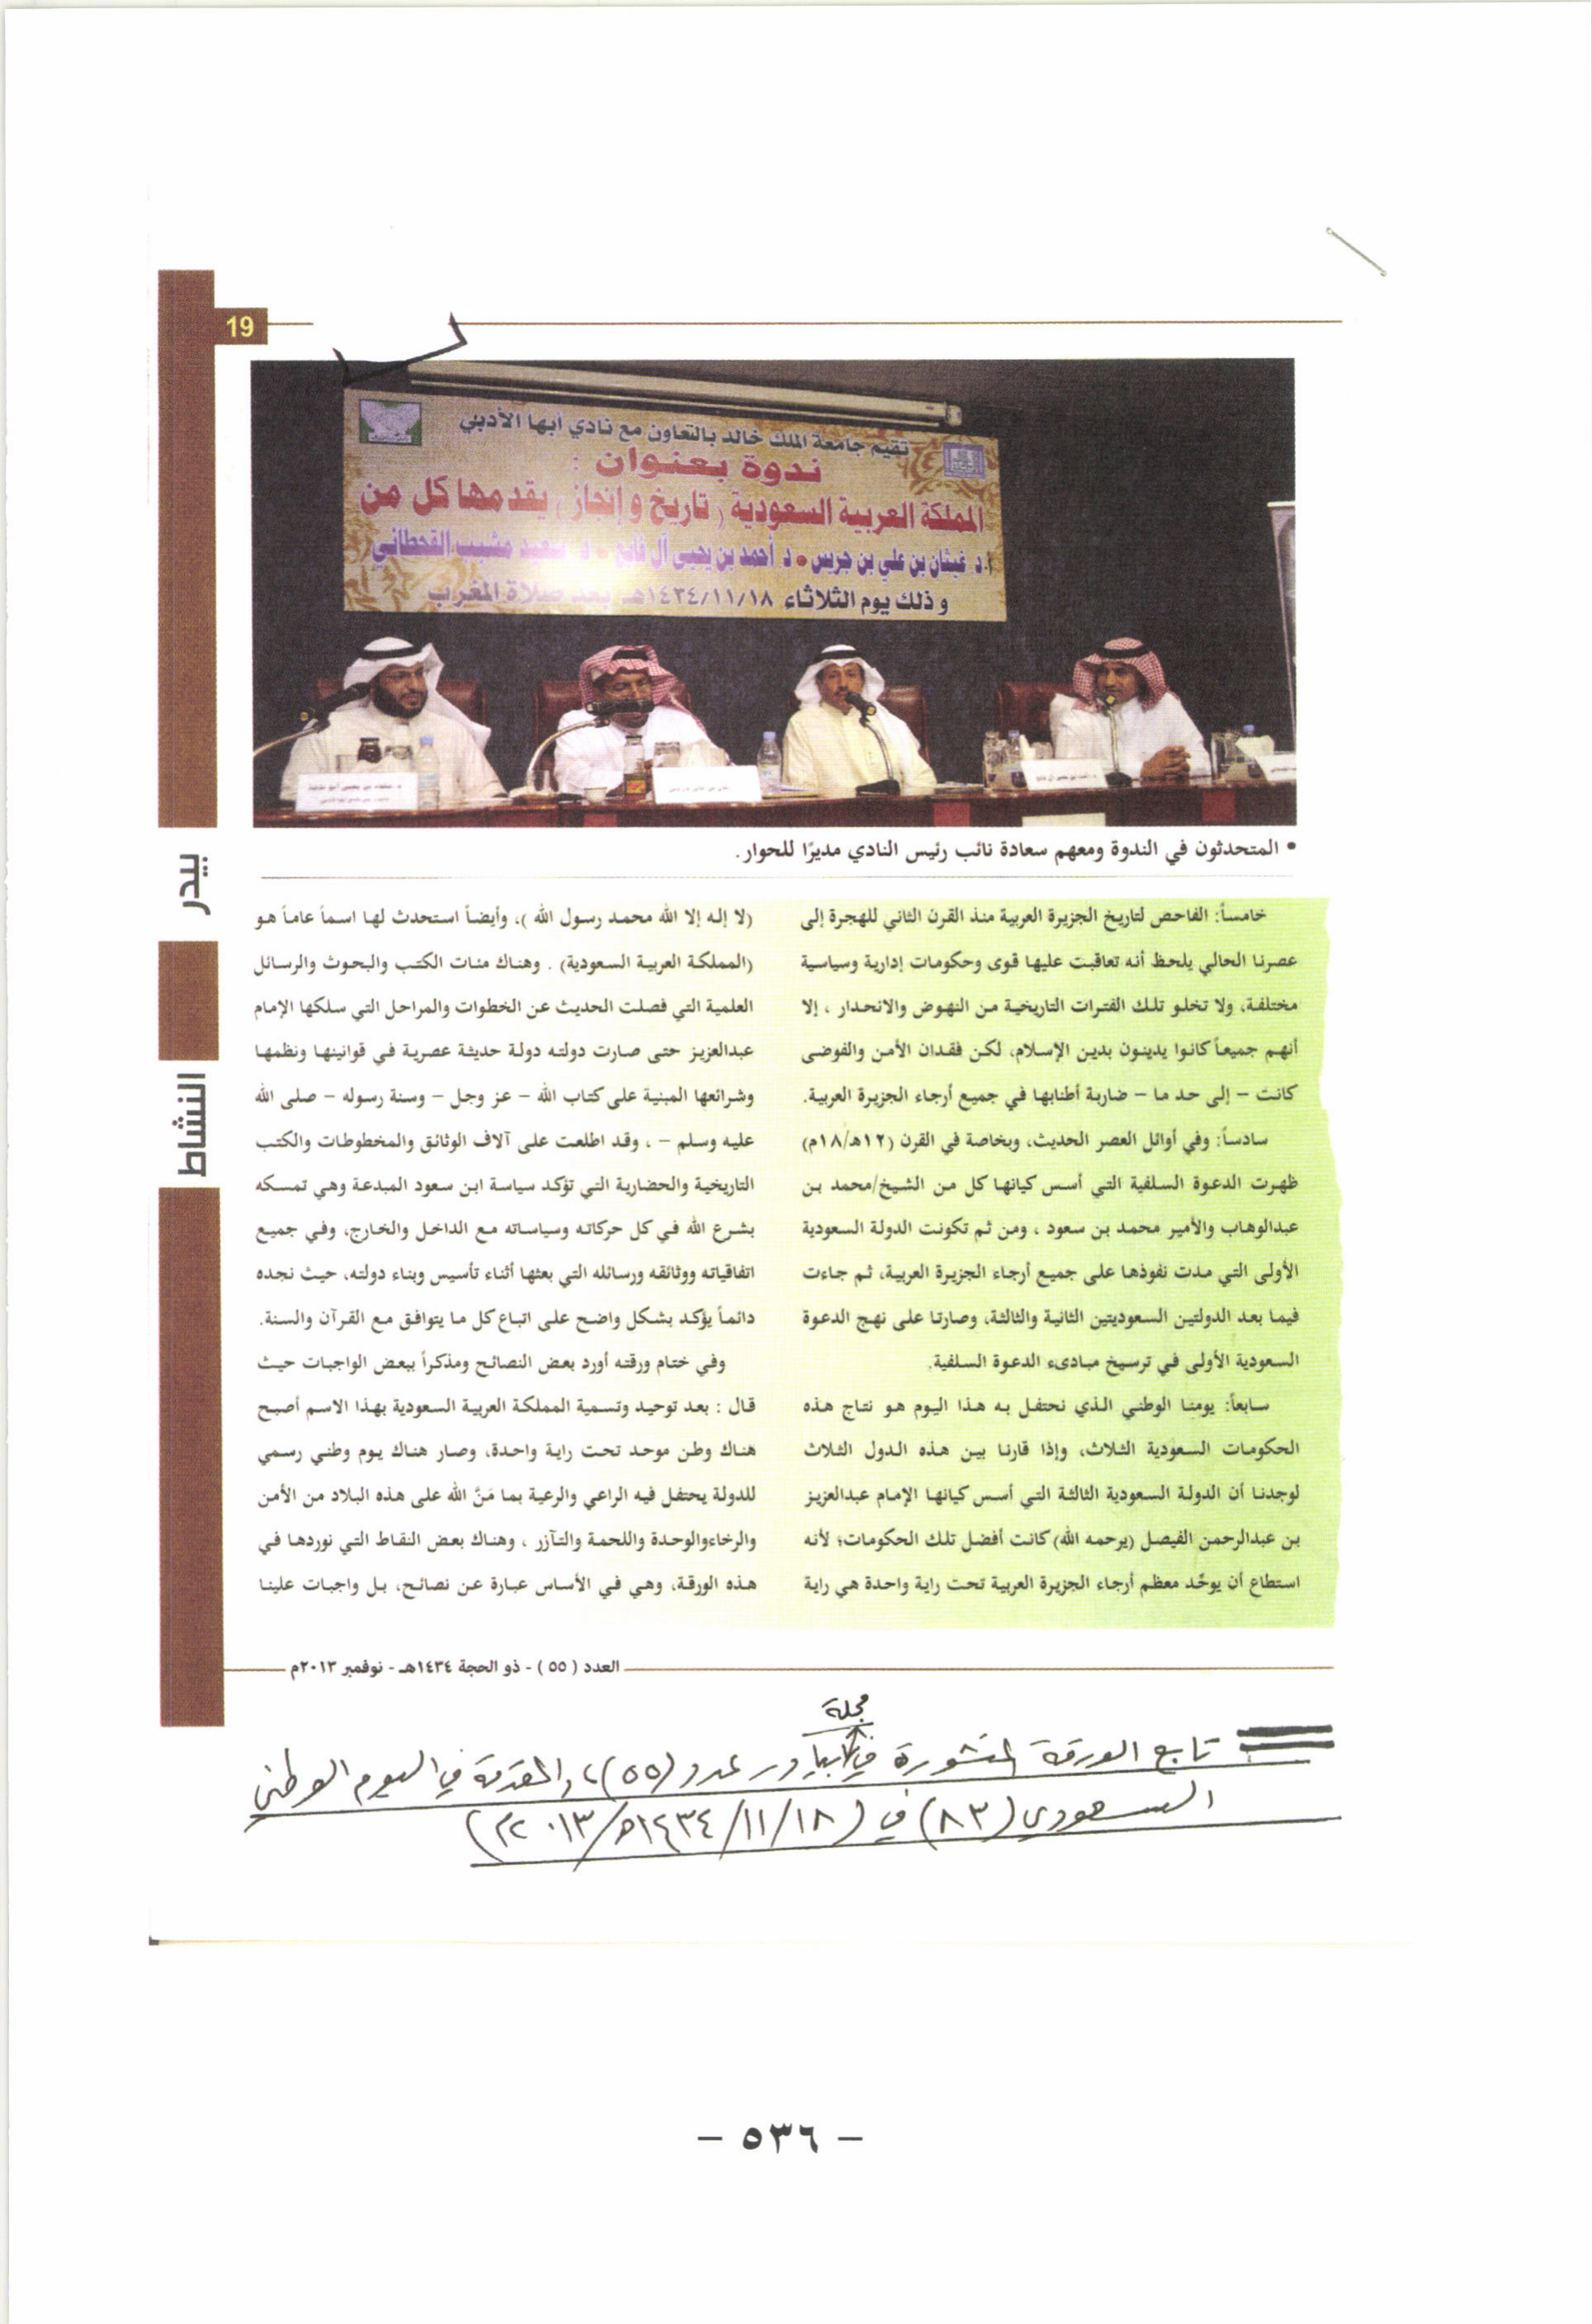 19
تقيم جامعة الملك خالد بالتعاون مع نادي أبها الأدبي
ندوة بعنوان :
المملكة العربية السعودية ( تاريخ و إنجاز ) يقدمها كل من
أ.د غيثان بن علي بن جريس • د أحمد بن يحيى آل فائع • د سعيد مشبب القحطاني
و ذلك يوم الثلاثاء ١٤٣٤/١١/١٨هـ بعد صلاة المغرب
• المتحدثون في الندوة ومعهم سعادة نائب رئيس النادي مديرًا للحوار.
بيدر
النشاط
خامساً: الفاحص لتاريخ الجزيرة العربية منذ القرن الثاني للهجرة إلى
عصرنا الحالي يلحظ أنه تعاقبت عليها قوى وحكومات إدارية وسياسية
مختلفة، ولا تخلو تلك الفترات التاريخية من النهوض والانحدار ، إلا
أنهم جميعاً كانوا يدينون بدين الإسلام، لكن فقدان الأمن والفوضى
كانت – إلى حد ما – ضاربة أطنابها في جميع أرجاء الجزيرة العربية.
سادساً: وفي أوائل العصر الحديث، وبخاصة في القرن (١٢هـ/١٨م)
ظهرت الدعوة السلفية التي أسس كيانها كل من الشيخ/محمد بن
عبدالوهاب والأمير محمد بن سعود ، ومن ثم تكونت الدولة السعودية
الأولى التي مدت نفوذها على جميع أرجاء الجزيرة العربية، ثم جاءت
فيما بعد الدولتين السعوديتين الثانية والثالثة، وصارتا على نهج الدعوة
السعودية الأولى في ترسيخ مبادىء الدعوة السلفية.
سابعاً: يومنا الوطني الذي نحتفل به هذا اليوم هو نتاج هذه
الحكومات السعودية الثلاث، وإذا قارنا بين هذه الدول الثلاث
لوجدنا أن الدولة السعودية الثالثة التي أسس كيانها الإمام عبدالعزيز
بن عبدالرحمن الفيصل (يرحمه الله) كانت أفضل تلك الحكومات؛ لأنه
استطاع أن يوحّد معظم أرجاء الجزيرة العربية تحت راية واحدة هي راية
(لا إله إلا الله محمد رسول الله )، وأيضاً استحدث لها اسماً عاماً هو
(المملكة العربية السعودية) . وهناك مئات الكتب والبحوث والرسائل
العلمية التي فصلت الحديث عن الخطوات والمراحل التي سلكها الإمام
عبدالعزيز حتى صارت دولته دولة حديثة عصرية في قوانينها ونظمها
وشرائعها المبنية على كتاب الله – عز وجل – وسنة رسوله – صلى الله
عليه وسلم – ، وقد اطلعت على آلاف الوثائق والمخطوطات والكتب
التاريخية والحضارية التي تؤكد سياسة ابن سعود المبدعة وهي تمسكه
بشرع الله في كل حركاته وسياساته مع الداخل والخارج، وفي جميع
اتفاقياته ووثائقه ورسائله التي بعثها أثناء تأسيس وبناء دولته، حيث نجده
دائماً يؤكد بشكل واضح على اتباع كل ما يتوافق مع القرآن والسنة.
وفي ختام ورقته أورد بعض النصائح ومذكراً ببعض الواجبات حيث
قال : بعد توحيد وتسمية المملكة العربية السعودية بهذا الاسم أصبح
هناك وطن موحد تحت راية واحدة، وصار هناك يوم وطني رسمي
للدولة يحتفل فيه الراعي والرعية بما مَنَّ الله على هذه البلاد من الأمن
والرخاءوالوحدة واللحمة والتآزر ، وهناك بعض النقاط التي نوردها في
هذه الورقة، وهي في الأساس عبارة عن نصائح، بل واجبات علينا
العدد ( ٥٥ ) - ذو الحجة ١٤٣٤هـ - نوفمبر ٢٠١٣م
مجلة
تابع الورقة المنشورة في بيادر عدد (٥٥)، والمقدمة في اليوم الوطني
السعودي (٨٣) في (١٨/١١/١٤٣٤هـ/٢٠١٣م)
– ٥٣٦ –